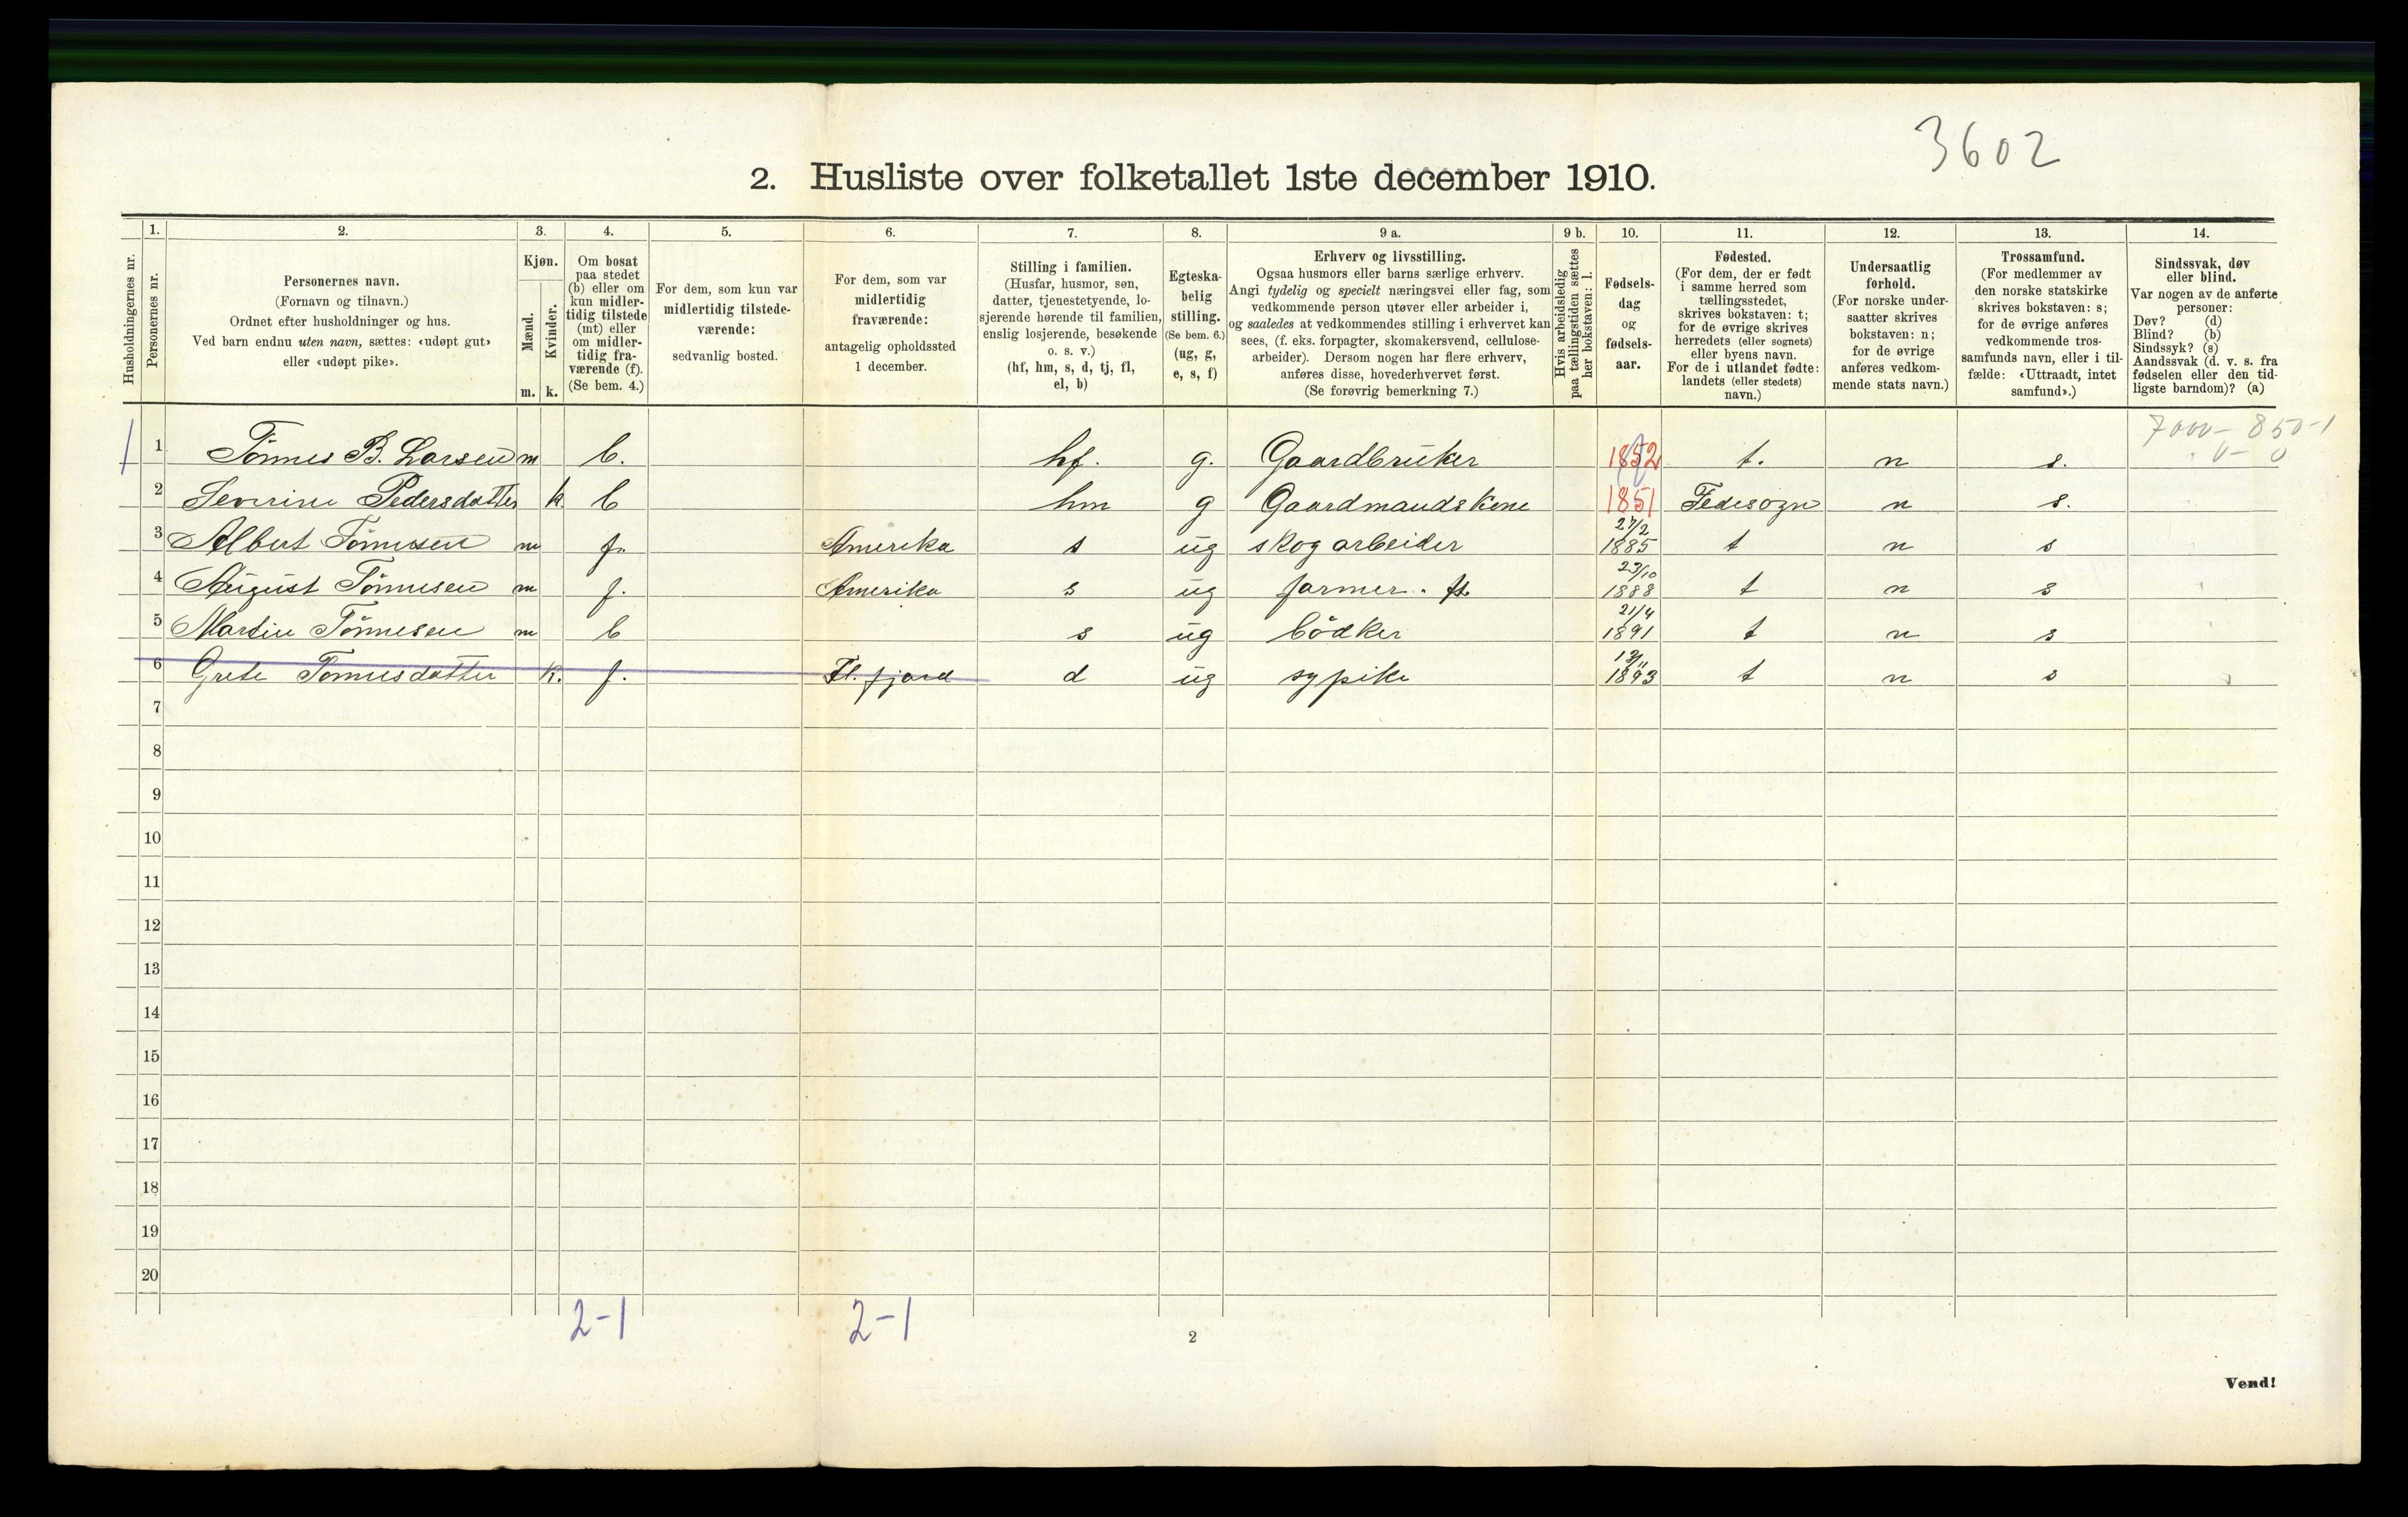 3602
2. Husliste over folketallet 1ste december 1910.
Husholdningernes nr.
1.
Personernes nr.
2.
Personernes navn.
(Fornavn og tilnavn.)
Ordnet efter husholdninger og hus.
Ved barn endnu uten navn, sættes: «udøpt gut»
eller «udøpt pike».
3.
Kjøn.
Mænd.
Kvinder.
m. k.
4.
Om bosat
paa stedet
(b) eller om
kun midler-
tidig tilstede
(mt) eller
om midler-
tidig fra-
værende (f).
(Se bem. 4.)
5.
For dem, som kun var
midlertidig tilstede-
værende:
sedvanlig bosted.
6.
For dem, som var
midlertidig
fraværende:
antagelig opholdssted
1 december.
7.
Stilling i familien.
(Husfar, husmor, søn,
datter, tjenestetyende, lo-
sjerende hørende til familien,
enslig losjerende, besøkende
o. s. v.)
(hf, hm, s, d, tj, fl,
el, b)
8.
Egteska-
belig
stilling.
(Se bem. 6.)
(ug, g,
e, s, f)
9 a.
Erhverv og livsstilling.
Ogsaa husmors eller barns særlige erhverv.
Angi tydelig og specielt næringsvei eller fag, som
vedkommende person utøver eller arbeider i,
og saaledes at vedkommendes stilling i erhvervet kan
sees, (f. eks. forpagter, skomakersvend, cellulose-
arbeider). Dersom nogen har flere erhverv,
anføres disse, hovederhvervet først.
(Se forøvrig bemerkning 7.)
9 b.
Hvis arbeidsledig
paa tællingstiden sættes
her bokstaven: l.
10.
Fødsels-
dag
og
fødsels-
aar.
11.
Fødested.
(For dem, der er født
i samme herred som
tællingsstedet,
skrives bokstaven: t;
for de øvrige skrives
herredets (eller sognets)
eller byens navn.
For de i utlandet fødte:
landets (eller stedets)
navn.)
12.
Undersaatlig
forhold.
(For norske under-
saatter skrives
bokstaven: n;
for de øvrige
anføres vedkom-
mende stats navn.)
13.
Trossamfund.
(For medlemmer av
den norske statskirke
skrives bokstaven: s;
for de øvrige anføres
vedkommende tros-
samfunds navn, eller i til-
fælde: «Uttraadt, intet
samfund».)
14.
Sindssvak, døv
eller blind.
Var nogen av de anførte
personer:
Døv? (d)
Blind? (b)
Sindssyk? (s)
Aandssvak (d. v. s. fra
fødselen eller den tid-
ligste barndom)? (a)
7000- 850-1
0- 0
1 Tönnes B. Larsen m b. hf. g. Gaardbruker 1852 t. n s.
2 Severine Pedersdatter k. b hm g Gaardmandskone 1851 Fedesogn n s.
3 Albert Tönnesen m f. Amerika s ug skogarbeider 27/2 1885 t n s
4 August Tönnesen m f. Amerika s ug farmer. 23/10 1888 t n s
5 Martin Tönnesen m b s ug bödker 21/4 1891 t n s
6 Grete Tönnesdatter k. f. Fl. fjord d ug sypike 1893 t n s
7
8
9
10
11
12
13
14
15
16
17
18
19
20
2-1 2-1
2
Vend!